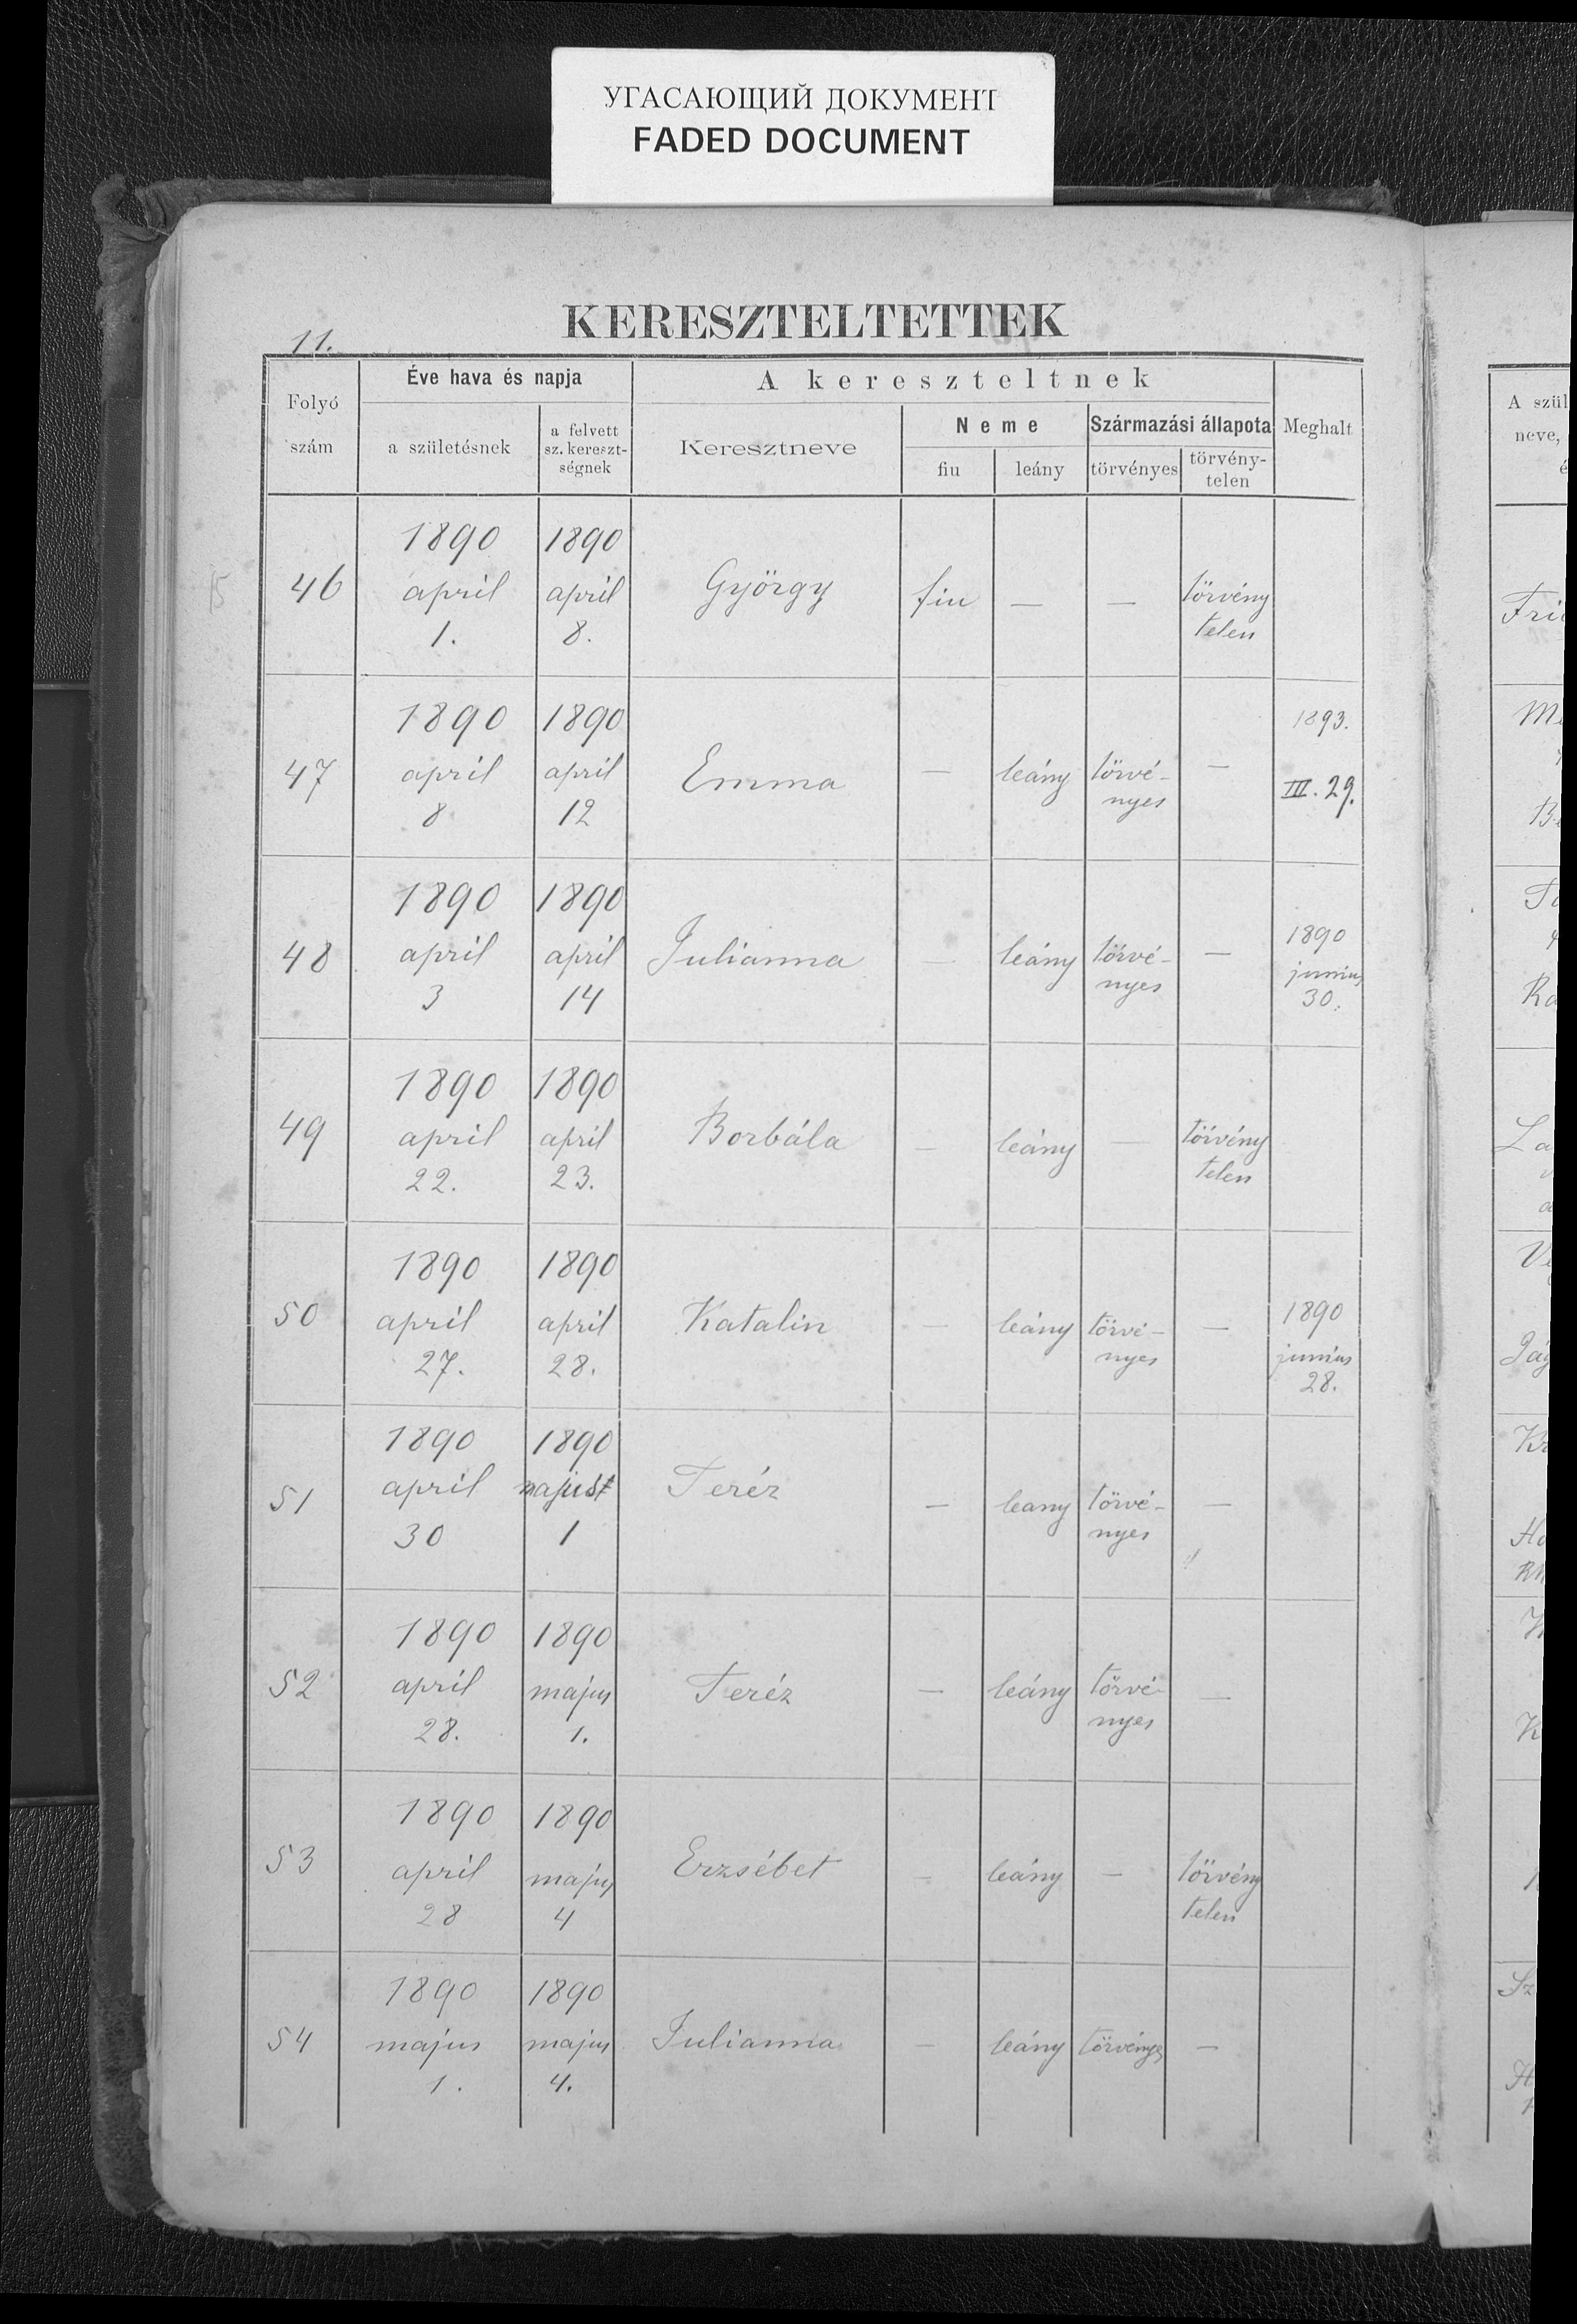 УГАСАЮЩИЙ ДОКУМЕНТ
FADED DOCUMENT
11.
KERESZTELTETTEK
Folyó szám
Éve hava és napja
a születésnek
a felvett sz. kereszt-ségnek
A kereszteltnek
Keresztneve
Neme
fiu
leány
Származási állapota
törvényes
törvény-telen
Meghalt
46
1890 april 1.
1890 april 8.
György
fiu
—
—
törvény telen
47
1890 april 8
1890 april 12
Emma
—
leány
törvé-nyes
—
1893. III. 29.
48
1890 april 3
1890 april 14
Julianna
—
leány
törvé-nyes
—
1890 junius 30.
49
1890 april 22.
1890 april 23.
Borbála
—
leány
—
törvény telen
50
1890 april 27.
1890 april 28.
Katalin
—
leány
törvé-nyes
—
1890 junius 28.
51
1890 april 30
1890 1
Teréz
—
leany
törvé-nyes
—
52
1890 april 28.
1890 majus 1.
Teréz
—
leány
törvé-nyes
—
53
1890 april 28
1890 majus 4
Erzsébet
—
leány
—
törvény telen
54
1890 majus 1.
1890 majus 4.
Julianna
—
leány
törvényes
—
A szül
neve,